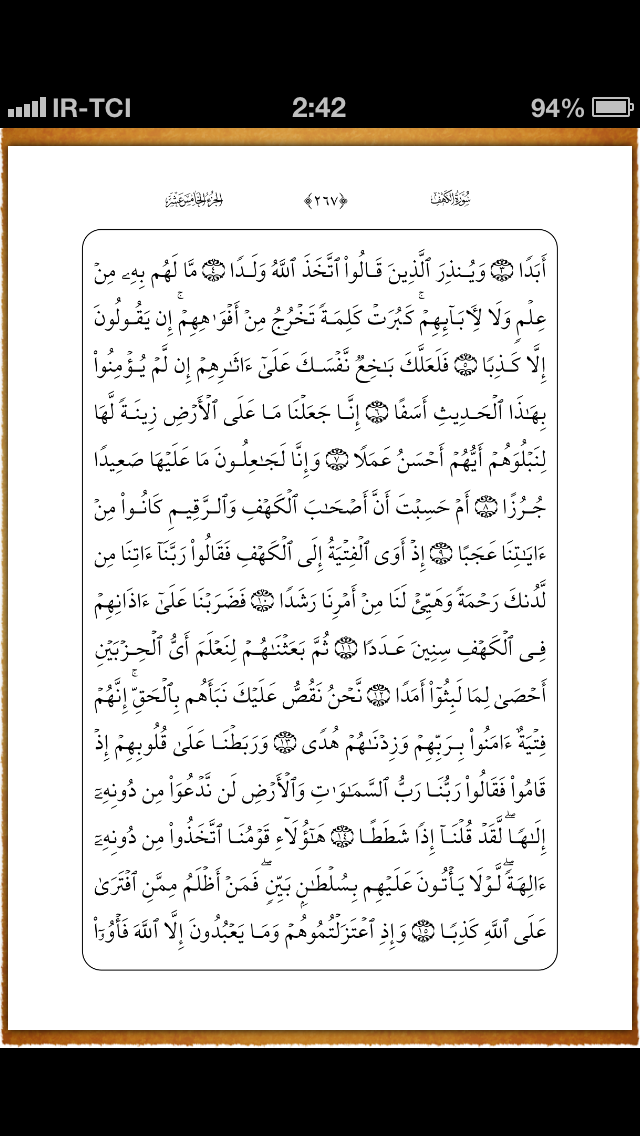 IR-TCI 2:42 94%
سُورَةُ الكَهْفِ ﴿٢٦٧﴾ الجُزْءُ الخَامِسَ عَشَرَ
أَبَدًا ۝٣ وَيُنذِرَ ٱلَّذِينَ قَالُوا۟ ٱتَّخَذَ ٱللَّهُ وَلَدًا ۝٤ مَّا لَهُم بِهِۦ مِنْ
عِلْمٍ وَلَا لِءَابَآئِهِمْ ۚ كَبُرَتْ كَلِمَةً تَخْرُجُ مِنْ أَفْوَٰهِهِمْ ۚ إِن يَقُولُونَ
إِلَّا كَذِبًا ۝٥ فَلَعَلَّكَ بَٰخِعٌ نَّفْسَكَ عَلَىٰٓ ءَاثَٰرِهِمْ إِن لَّمْ يُؤْمِنُوا۟
بِهَٰذَا ٱلْحَدِيثِ أَسَفًا ۝٦ إِنَّا جَعَلْنَا مَا عَلَى ٱلْأَرْضِ زِينَةً لَّهَا
لِنَبْلُوَهُمْ أَيُّهُمْ أَحْسَنُ عَمَلًا ۝٧ وَإِنَّا لَجَٰعِلُونَ مَا عَلَيْهَا صَعِيدًا
جُرُزًا ۝٨ أَمْ حَسِبْتَ أَنَّ أَصْحَٰبَ ٱلْكَهْفِ وَٱلرَّقِيمِ كَانُوا۟ مِنْ
ءَايَٰتِنَا عَجَبًا ۝٩ إِذْ أَوَى ٱلْفِتْيَةُ إِلَى ٱلْكَهْفِ فَقَالُوا۟ رَبَّنَآ ءَاتِنَا مِن
لَّدُنكَ رَحْمَةً وَهَيِّئْ لَنَا مِنْ أَمْرِنَا رَشَدًا ۝١٠ فَضَرَبْنَا عَلَىٰٓ ءَاذَانِهِمْ
فِى ٱلْكَهْفِ سِنِينَ عَدَدًا ۝١١ ثُمَّ بَعَثْنَٰهُمْ لِنَعْلَمَ أَىُّ ٱلْحِزْبَيْنِ
أَحْصَىٰ لِمَا لَبِثُوٓا۟ أَمَدًا ۝١٢ نَّحْنُ نَقُصُّ عَلَيْكَ نَبَأَهُم بِٱلْحَقِّ ۚ إِنَّهُمْ
فِتْيَةٌ ءَامَنُوا۟ بِرَبِّهِمْ وَزِدْنَٰهُمْ هُدًى ۝١٣ وَرَبَطْنَا عَلَىٰ قُلُوبِهِمْ إِذْ
قَامُوا۟ فَقَالُوا۟ رَبُّنَا رَبُّ ٱلسَّمَٰوَٰتِ وَٱلْأَرْضِ لَن نَّدْعُوَا۟ مِن دُونِهِۦٓ
إِلَٰهًا ۖ لَّقَدْ قُلْنَآ إِذًا شَطَطًا ۝١٤ هَٰٓؤُلَآءِ قَوْمُنَا ٱتَّخَذُوا۟ مِن دُونِهِۦٓ
ءَالِهَةً ۖ لَّوْلَا يَأْتُونَ عَلَيْهِم بِسُلْطَٰنٍۭ بَيِّنٍ ۖ فَمَنْ أَظْلَمُ مِمَّنِ ٱفْتَرَىٰ
عَلَى ٱللَّهِ كَذِبًا ۝١٥ وَإِذِ ٱعْتَزَلْتُمُوهُمْ وَمَا يَعْبُدُونَ إِلَّا ٱللَّهَ فَأْوُۥٓا۟